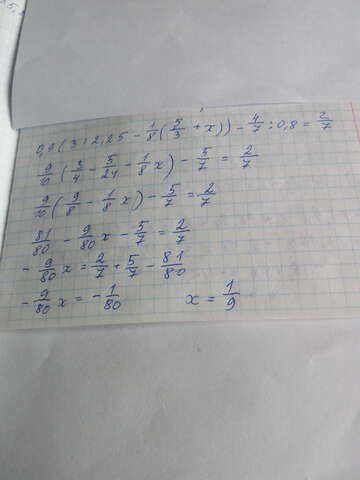 0,9(3:2,25 - 1/8(5/3 + x)) - 4/7:0,8 = 2/7
9/10(3/4 - 5/24 - 1/8 x) - 5/7 = 2/7
9/10(9/8 - 1/8 x) - 5/7 = 2/7
81/80 - 9/80 x - 5/7 = 2/7
- 9/80 x = 2/7 + 5/7 - 81/80
- 9/80 x = - 1/80 x = 1/9